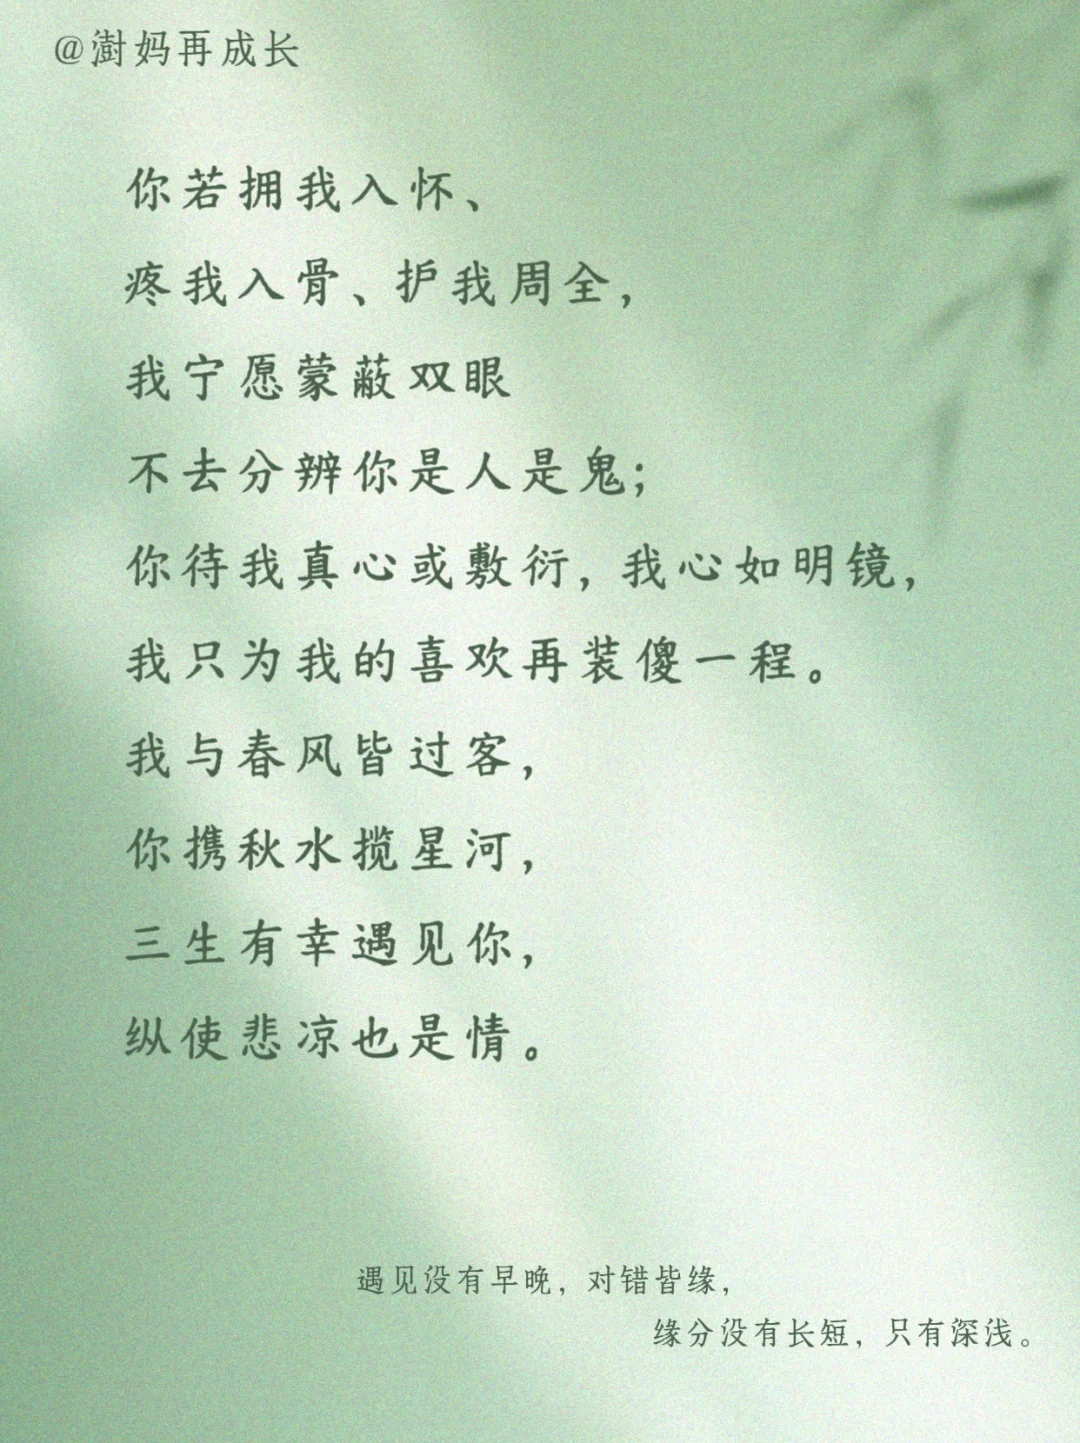 @澍妈再成长
你若拥我入怀、
疼我入骨、护我周全，
我宁愿蒙蔽双眼
不去分辨你是人是鬼；
你待我真心或敷衍，我心如明镜，
我只为我的喜欢再装傻一程。
我与春风皆过客，
你携秋水揽星河，
三生有幸遇见你，
纵使悲凉也是情。
遇见没有早晚，对错皆缘，
缘分没有长短，只有深浅。